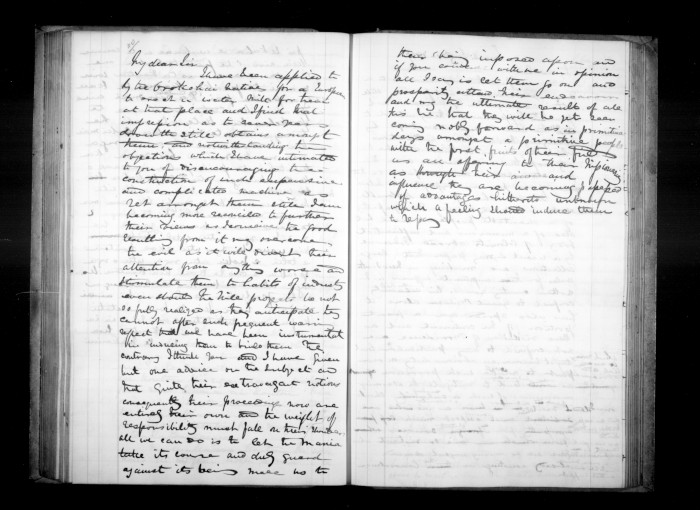 My dear Sir
I have been applied to
by the Native for a European
to erect a water Mill for them
at that place and I find that
impression as to
still obtains amongst
them and notwithstanding the
objection which I have intimated
to you of discouraging the
construction of such expensive
and complicated machinery as
yet amongst them still I am
becoming more reconciled to further
their views as I conceive the good
resulting from it may overcome
the evil as it will divert their
attention from anything worse and
stimulate them to habits of industry
even should the Mill project be not
so fully realized as they anticipate they
cannot after such frequent warning
expect that we have been instrumental
in inducing them to build them the
contrary I think You and I have given
but one advice on the subject and
that quite their extravagant notions
consequently their proceedings now are
entirely their own and the weight of
responsibility must fall on their Shoulders
all we can do is to let the Mania
take its course and duly guard
against its being made use to
their being imposed upon and
if you coincide with me in opinion
all I say is let them go on and
prosperity attend their endeavours
and may the ultimate result of all
this be that they will be yet seen
coming nobly forward as in primitive
days amongst a primitive people
with the first fruits of their
as an offering to their Missionary
as through their and
influence they are becoming possessed
of advantages hitherto unknown
which a feeling should induce them
to repay